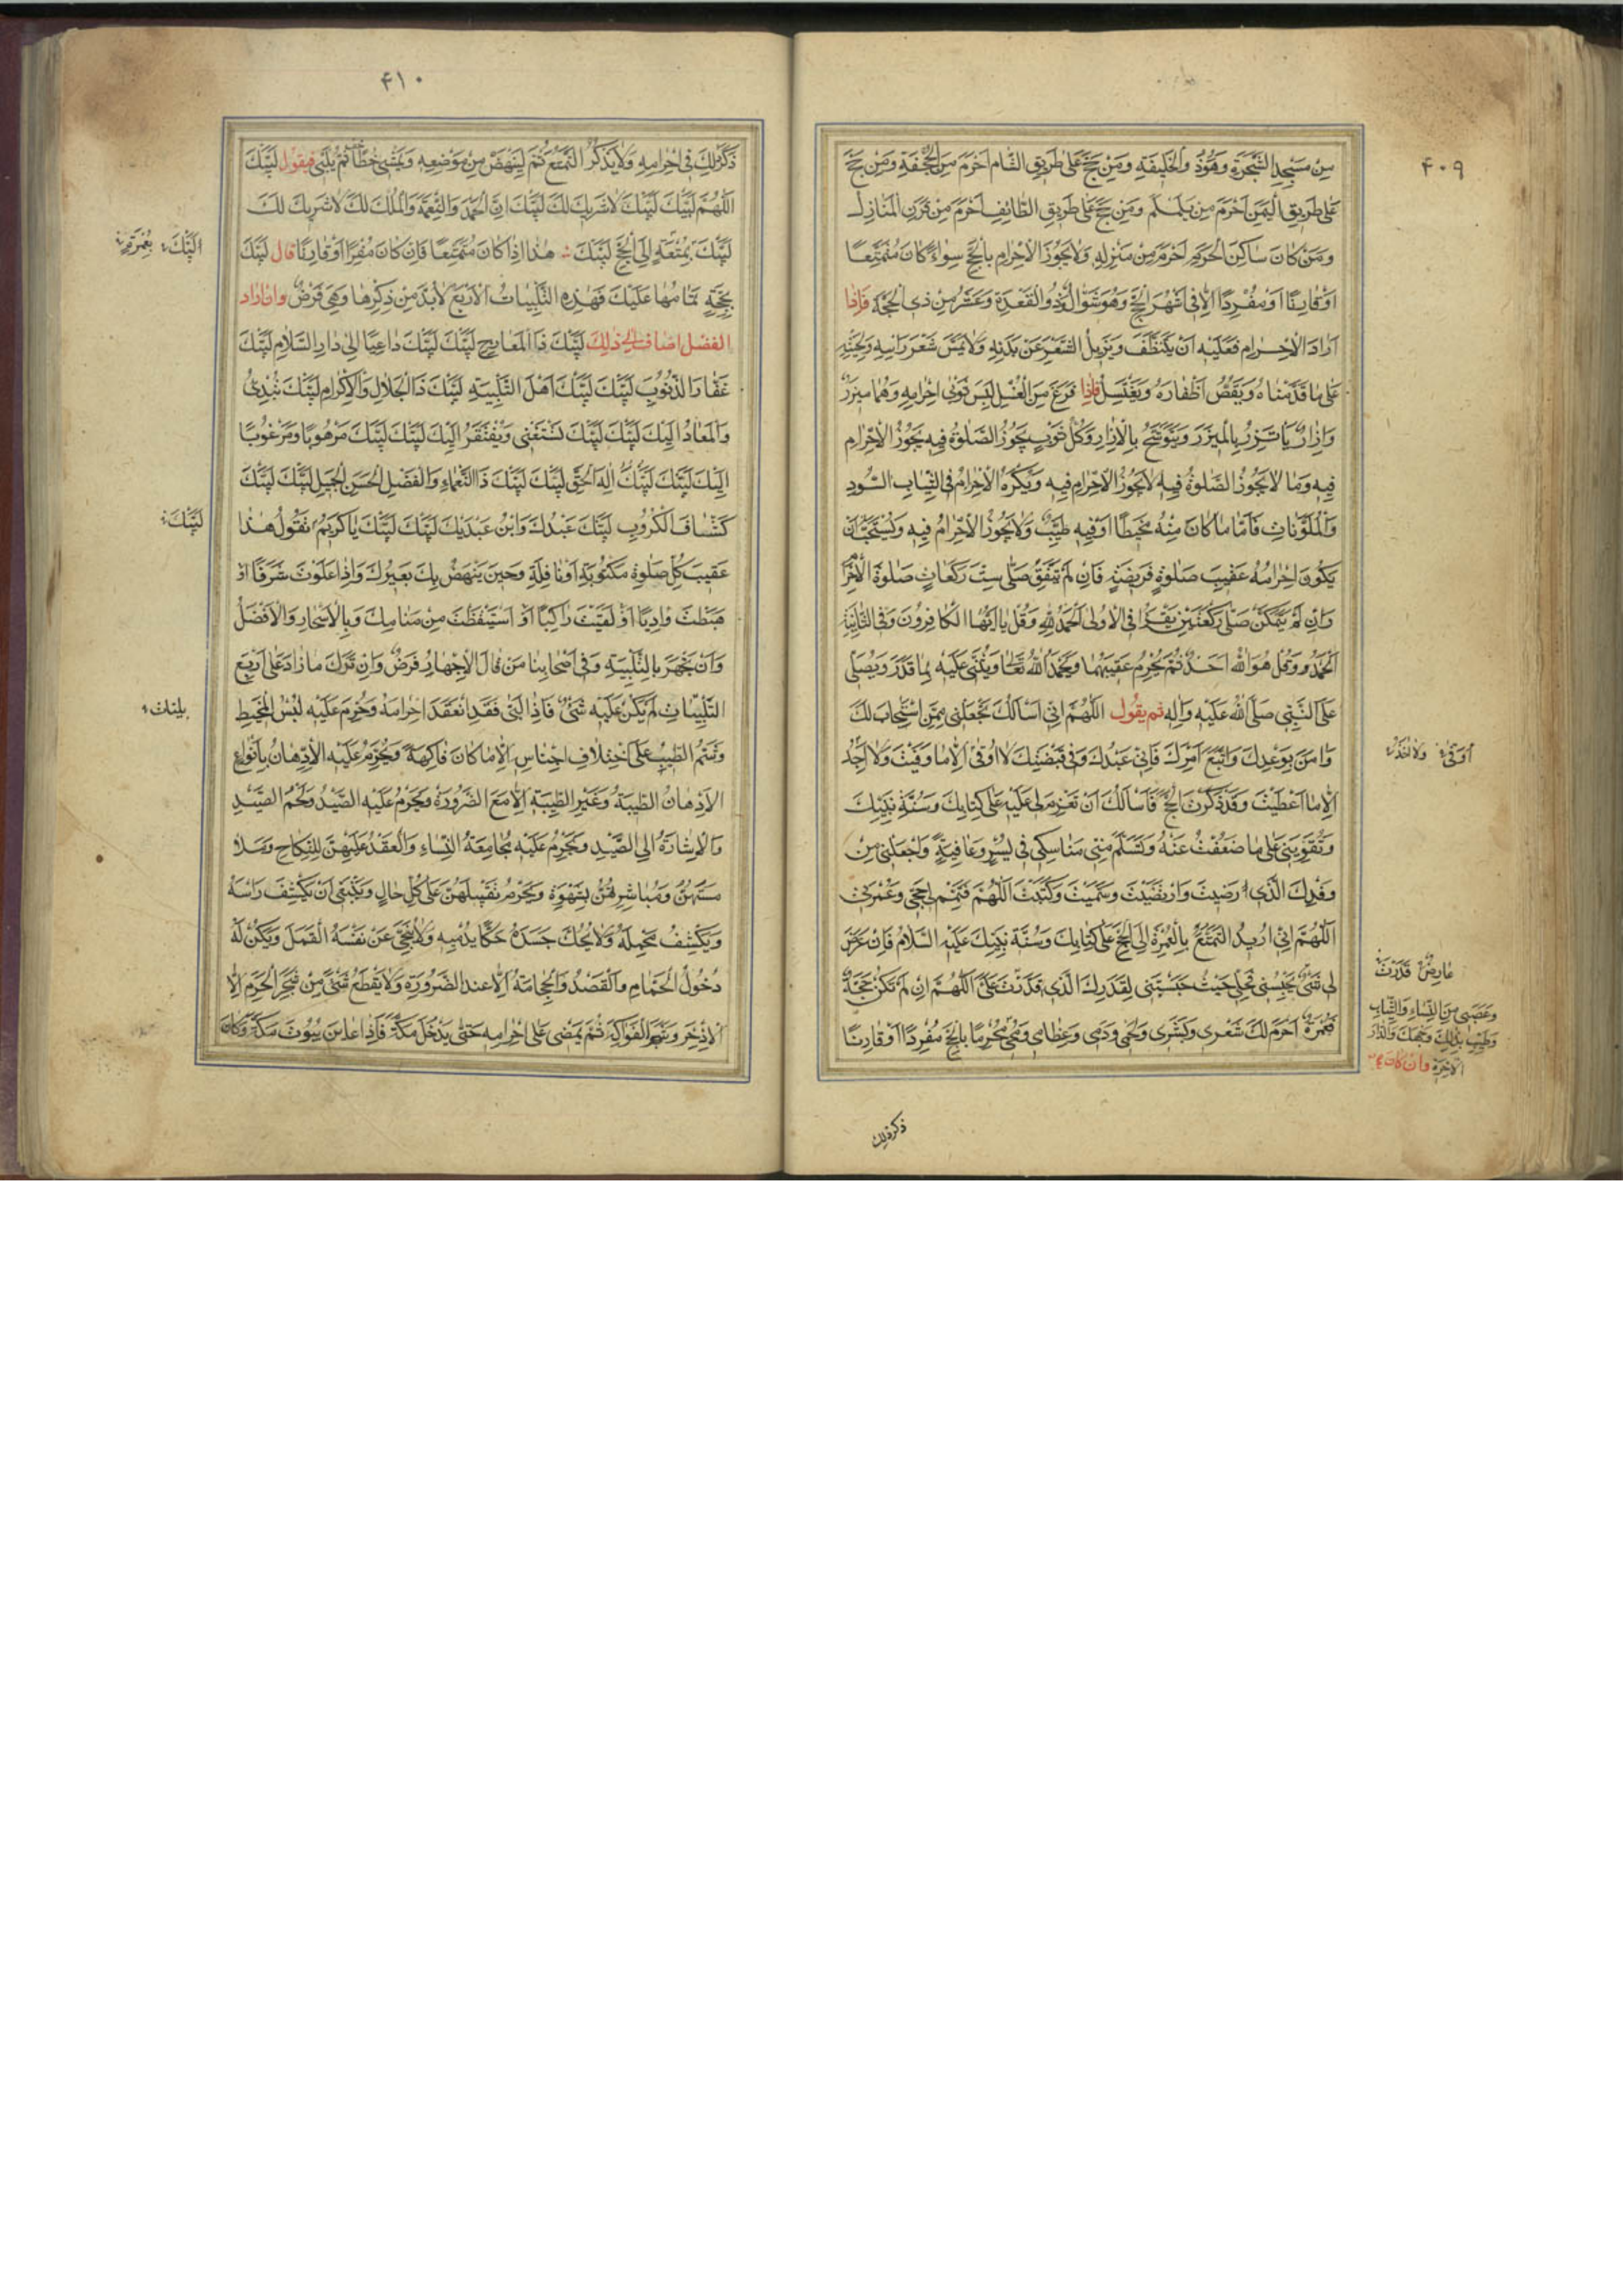 ۴۰۹
مِنْ مَسْجِدِ الشَّجَرَةِ وَهُوَ ذُو الْحُلَيْفَةِ وَمَنْ حَجَّ عَلَى طَرِيقِ الشَّامِ اَحْرَمَ مِنَ الْجُحْفَةِ وَمَنْ حَجَّ
عَلَى طَرِيقِ الْيَمَنِ اَحْرَمَ مِنْ يَلَمْلَمَ وَمَنْ حَجَّ عَلَى طَرِيقِ الطَّائِفِ اَحْرَمَ مِنْ قَرْنِ الْمَنَازِلِ
وَمَنْ كَانَ سَاكِنَ الْحَرَمِ اَحْرَمَ مِنْ مَنْزِلِهِ وَلَا يَجُوزُ الْاِحْرَامُ بِالْحَجِّ سِوَاءً كَانَ مُتَمَتِّعًا
اَوْ قَارِنًا اَوْ مُفْرِدًا اِلَّا فِى اَشْهُرِ الْحَجِّ وَهُوَ شَوَّالٌ وَذُو الْقَعْدَةِ وَعَشْرٌ مِنْ ذِى الْحِجَّةِ فَاِذَا
اَرَادَ الْاِحْرَامَ فَعَلَيْهِ اَنْ يَتَنَظَّفَ وَيُزِيلَ الشَّعْرَ عَنْ بَدَنِهِ وَلَا يَمَسَّ شَعْرَ رَاْسِهِ وَلِحْيَتِهِ
عَلَى مَا قَدَّمْنَاهُ وَيَقُصُّ اَظْفَارَهُ وَيَغْتَسِلُ فَاِذَا فَرَغَ مِنَ الْغُسْلِ لَبِسَ ثَوْبَى اِحْرَامِهِ وَهُمَا مِيزَرٌ
وَاِزَارٌ يَاْتَزِرُ بِالْمِيزَرِ وَيَتَوَشَّحُ بِالْاِزَارِ وَكُلُّ ثَوْبٍ يَجُوزُ الصَّلٰوةُ فِيهِ يَجُوزُ الْاِحْرَامُ
فِيهِ وَمَا لَا يَجُوزُ الصَّلٰوةُ فِيهِ لَا يَجُوزُ الْاِحْرَامُ فِيهِ وَيُكْرَهُ الْاِحْرَامُ فِى الثِّيَابِ السُّودِ
وَالْمُلَوَّنَاتِ فَاَمَّا مَا كَانَ مِنْهُ مَخِيطًا اَوْ فِيهِ طِيبٌ وَلَا يَجُوزُ الْاِحْرَامُ فِيهِ وَيُسْتَحَبُّ اَنْ
يَكُونَ اِحْرَامُهُ عَقِيبَ صَلٰوةٍ فَرِيضَةٍ فَاِنْ لَمْ يَتَّفِقْ صَلَّى سِتَّ رَكَعَاتٍ صَلٰوةَ الْاِحْرَامِ
وَاِنْ لَمْ يَتَمَكَّنْ صَلَّى رَكْعَتَيْنِ يَقْرَاُ فِى الْاُولَى اَلْحَمْدُ لِلّٰهِ وَقُلْ يَا اَيُّهَا الْكَافِرُونَ وَفِى الثَّانِيَةِ
اَلْحَمْدُ وَقُلْ هُوَ اللهُ اَحَدٌ ثُمَّ يُحْرِمُ عَقِيبَهُمَا وَيَحْمَدُ اللهَ تَعَالَى وَيُثْنِى عَلَيْهِ بِمَا قَدَرَ وَيُصَلِّى
عَلَى النَّبِىِّ صَلَّى اللهُ عَلَيْهِ وَاٰلِهِ ثم يقول اَللّٰهُمَّ اِنِّى اَسْاَلُكَ تَجْعَلَنِى مِمَّنِ اسْتَجَابَ لَكَ
وَاٰمَنَ بِوَعْدِكَ وَاتَّبَعَ اَمْرَكَ فَاِنِّى عَبْدُكَ وَفِى قَبْضَتِكَ لَا اُوقَى اِلَّا مَا وَقَيْتَ وَلَا اَجِدُ
اِلَّا مَا اَعْطَيْتَ وَقَدْ ذَكَرْتَ الْحَجَّ فَاَسْاَلُكَ اَنْ تَعْزِمَ لِى عَلَيْهِ عَلَى كِتَابِكَ وَسُنَّةِ نَبِيِّكَ
وَتُقَوِّيَنِى عَلَى مَا ضَعُفْتُ عَنْهُ وَتَسَلَّمَ مِنِّى مَنَاسِكِى فِى يُسْرٍ وَعَافِيَةٍ وَاجْعَلْنِى مِنْ
وَفْدِكَ الَّذِى رَضِيتَ وَارْتَضَيْتَ وَسَمَّيْتَ وَكَتَبْتَ اَللّٰهُمَّ فَتَمِّمْ لِى حَجِّى وَعُمْرَتِى
اَللّٰهُمَّ اِنِّى اُرِيدُ التَّمَتُّعَ بِالْعُمْرَةِ اِلَى الْحَجِّ عَلَى كِتَابِكَ وَسُنَّةِ نَبِيِّكَ عَلَيْهِ السَّلَامُ فَاِنْ عَرَضَ
لِى شَىْءٌ يَحْبِسُنِى فَحُلَّنِى حَيْثُ حَبَسْتَنِى لِقَدَرِكَ الَّذِى قَدَّرْتَ عَلَىَّ اَللّٰهُمَّ اِنْ لَمْ تَكُنْ حَجَّةً
فَعُمْرَةً اَحْرَمَ لَكَ شَعْرِى وَبَشَرِى وَلَحْمِى وَدَمِى وَعِظَامِى وَمُخِّى مُحْرِمًا بِالْحَجِّ مُفْرِدًا اَوْ قَارِنًا
عَارِضٌ قَدَّرْتَ
وَعَصَبِى مِنَ النِّسَاءِ وَالثِّيَابِ
وَالطِّيبِ بِذٰلِكَ وَجْهَكَ وَالدَّارَ
الْاٰخِرَةَ وان كان
ذكر ذلك
۴۱۰
ذَكَرَ ذٰلِكَ فِى اِحْرَامِهِ وَلَا يَذْكُرُ التَّمَتُّعَ ثُمَّ لِيَنْهَضْ مِنْ مَوْضِعِهِ وَيَمْشِى خُطًا ثُمَّ يُلَبِّى فيقول لَبَّيْكَ
اَللّٰهُمَّ لَبَّيْكَ لَبَّيْكَ لَا شَرِيكَ لَكَ لَبَّيْكَ اِنَّ الْحَمْدَ وَالنِّعْمَةَ وَالْمُلْكَ لَكَ لَا شَرِيكَ لَكَ
لَبَّيْكَ بِمُتْعَةٍ اِلَى الْحَجِّ لَبَّيْكَ هٰذَا اِذَا كَانَ مُتَمَتِّعًا فَاِنْ كَانَ مُفْرِدًا اَوْ قَارِنًا قال لَبَّيْكَ
بِحَجَّةٍ تَمَامُهَا عَلَيْكَ فَهٰذِهِ التَّلْبِيَاتُ الْاَرْبَعُ لَا بُدَّ مِنْ ذِكْرِهَا وَهِىَ فَرْضٌ وان اراد
الفضل اضاف الى ذلك لَبَّيْكَ ذَا الْمَعَارِجِ لَبَّيْكَ لَبَّيْكَ دَاعِيًا اِلَى دَارِ السَّلَامِ لَبَّيْكَ
غَفَّارَ الذُّنُوبِ لَبَّيْكَ لَبَّيْكَ اَهْلَ التَّلْبِيَةِ لَبَّيْكَ ذَا الْجَلَالِ وَالْاِكْرَامِ لَبَّيْكَ تُبْدِئُ
وَالْمَعَادُ اِلَيْكَ لَبَّيْكَ لَبَّيْكَ تَسْتَغْنِى وَيُفْتَقَرُ اِلَيْكَ لَبَّيْكَ لَبَّيْكَ مَرْهُوبًا وَمَرْغُوبًا
اِلَيْكَ لَبَّيْكَ لَبَّيْكَ اِلٰهَ الْحَقِّ لَبَّيْكَ لَبَّيْكَ ذَا النَّعْمَاءِ وَالْفَضْلِ الْحَسَنِ الْجَمِيلِ لَبَّيْكَ لَبَّيْكَ
كَشَّافَ الْكُرُوبِ لَبَّيْكَ عَبْدُكَ وَابْنُ عَبْدَيْكَ لَبَّيْكَ لَبَّيْكَ يَا كَرِيمُ تَقُولُ هٰذَا
عَقِيبَ كُلِّ صَلٰوةٍ مَكْتُوبَةٍ اَوْ نَافِلَةٍ وَحِينَ يَنْهَضُ بِكَ بَعِيرُكَ وَاِذَا عَلَوْتَ شَرَفًا اَوْ
هَبَطْتَ وَادِيًا اَوْ لَقِيتَ رَاكِبًا اَوِ اسْتَيْقَظْتَ مِنْ مَنَامِكَ وَبِالْاَسْحَارِ وَالْاَفْضَلُ
وَاَنْ يَجْهَرَ بِالتَّلْبِيَةِ وَفِى اَصْحَابِنَا مَنْ قَالَ الْاِجْهَارُ فَرْضٌ وَاِنْ تَرَكَ مَا زَادَ عَلَى اَرْبَعِ
التَّلْبِيَاتِ لَمْ يَكُنْ عَلَيْهِ شَىْءٌ فَاِذَا لَبَّى فَقَدِ انْعَقَدَ اِحْرَامُهُ وَحَرُمَ عَلَيْهِ لُبْسُ الْمَخِيطِ
وَشَمُّ الطِّيبِ عَلَى اخْتِلَافِ اَجْنَاسِهِ اِلَّا مَا كَانَ فَاكِهَةً وَيَحْرُمُ عَلَيْهِ الْاِدِّهَانُ بِاَنْوَاعِ
الْاَدْهَانِ الطَّيِّبَةِ وَغَيْرِ الطَّيِّبَةِ اِلَّا مَعَ الضَّرُورَةِ وَيَحْرُمُ عَلَيْهِ الصَّيْدُ وَلَحْمُ الصَّيْدِ
وَالْاِشَارَةُ اِلَى الصَّيْدِ وَيَحْرُمُ عَلَيْهِ مُجَامَعَةُ النِّسَاءِ وَالْعَقْدُ عَلَيْهِنَّ لِلنِّكَاحِ
مَسُّهُنَّ وَمُبَاشَرَتُهُنَّ بِشَهْوَةٍ وَيَحْرُمُ تَقْبِيلُهُنَّ عَلَى كُلِّ حَالٍ وَيَنْبَغِى اَنْ يَكْشِفَ رَاْسَهُ
وَيَكْشِفَ مَحْمِلَهُ وَلَا يَحُكَّ جَسَدَهُ حَكًّا يُدْمِيهِ وَلَا يُنَحِّى عَنْ نَفْسِهِ الْقَمْلَ وَيُكْرَهُ لَهُ
دُخُولُ الْحَمَّامِ وَالْفَصْدُ وَالْحِجَامَةُ اِلَّا عِنْدَ الضَّرُورَةِ وَلَا يَقْطَعْ شَىْءً مِنْ شَجَرِ الْحَرَمِ اِلَّا
الْاِذْخِرَ وَشَجَرَ الْفَوَاكِهِ ثُمَّ يَمْضِى عَلَى اِحْرَامِهِ حَتَّى يَدْخُلَ مَكَّةَ فَاِذَا عَايَنَ بُيُوتَ مَكَّةَ وَكَانَ
لَبَّيْكَ بِعُمْرَةٍ
لَبَّيْكَ